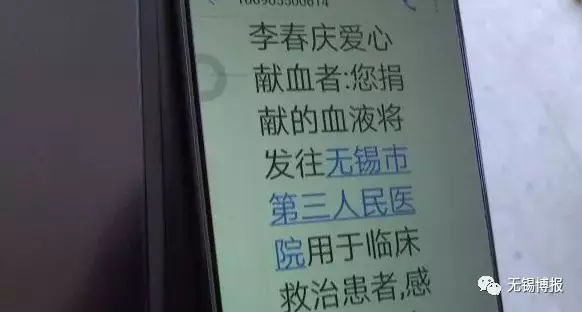 李春庆爱心
献血者:您捐
献的血液将
发往无锡市
第三人民医
院用于临床
救治患者,感
无锡博报